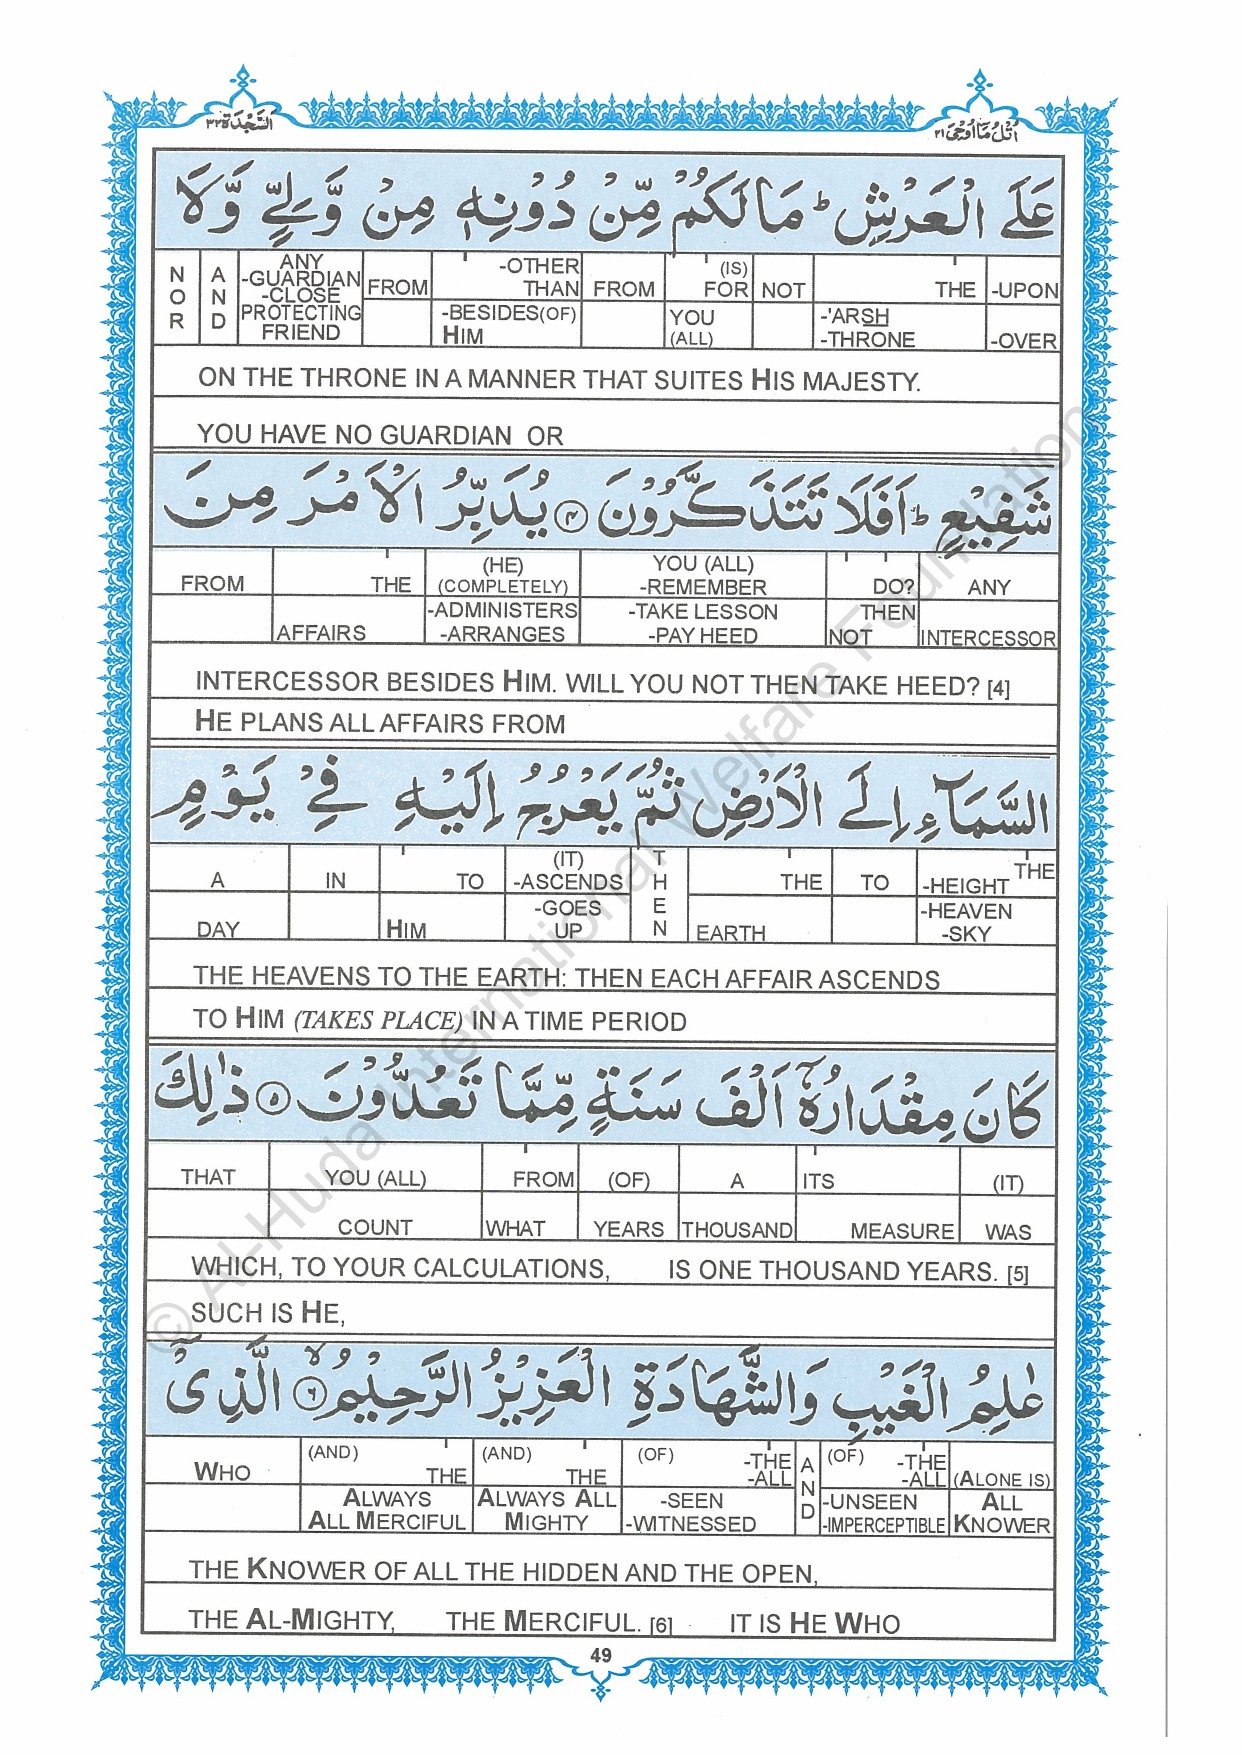 السَّجْدَة ٣٢
اُتْلُ مَا اُوحِيَ ٢١
عَلَى الْعَرْشِ ؕ مَا لَكُمْ مِّنْ دُوْنِهٖ مِنْ وَّلِيٍّ وَّلَا
NOR AND ANY -GUARDIAN -CLOSE PROTECTING FRIEND FROM -OTHER THAN FROM (IS) FOR NOT THE -UPON
-BESIDES(OF) HIM YOU (ALL) -'ARSH -THRONE -OVER
ON THE THRONE IN A MANNER THAT SUITES HIS MAJESTY.
YOU HAVE NO GUARDIAN OR
شَفِيْعٍ ؕ اَفَلَا تَتَذَكَّرُوْنَ ۝٤ يُدَبِّرُ الْاَمْرَ مِنَ
FROM THE (HE) (COMPLETELY) YOU (ALL) -REMEMBER DO? ANY
AFFAIRS -ADMINISTERS -ARRANGES -TAKE LESSON -PAY HEED THEN NOT INTERCESSOR
INTERCESSOR BESIDES HIM. WILL YOU NOT THEN TAKE HEED? [4]
HE PLANS ALL AFFAIRS FROM
السَّمَآءِ اِلَى الْاَرْضِ ثُمَّ يَعْرُجُ اِلَيْهِ فِيْ يَوْمٍ
A IN TO (IT) -ASCENDS THEN THE TO -HEIGHT THE
DAY HIM -GOES UP EARTH -HEAVEN -SKY
THE HEAVENS TO THE EARTH: THEN EACH AFFAIR ASCENDS
TO HIM (TAKES PLACE) IN A TIME PERIOD
كَانَ مِقْدَارُهٗۤ اَلْفَ سَنَةٍ مِّمَّا تَعُدُّوْنَ ۝٥ ذٰلِكَ
THAT YOU (ALL) FROM (OF) A ITS (IT)
COUNT WHAT YEARS THOUSAND MEASURE WAS
WHICH, TO YOUR CALCULATIONS, IS ONE THOUSAND YEARS. [5]
SUCH IS HE,
عٰلِمُ الْغَيْبِ وَالشَّهَادَةِ الْعَزِيْزُ الرَّحِيْمُ ۝٦ۙ الَّذِيْۤ
WHO (AND) THE (AND) THE (OF) -THE -ALL AND (OF) -THE -ALL (ALONE IS)
ALWAYS ALL MERCIFUL ALWAYS ALL MIGHTY -SEEN -WITNESSED -UNSEEN -IMPERCEPTIBLE ALL KNOWER
THE KNOWER OF ALL THE HIDDEN AND THE OPEN,
THE AL-MIGHTY, THE MERCIFUL. [6] IT IS HE WHO
49
© AL-Huda International Welfare Foundation